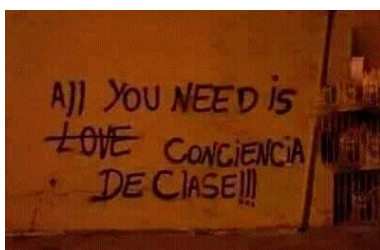 All YOU NEED iS
LOVE CONCiENCiA
DE ClASE!!!